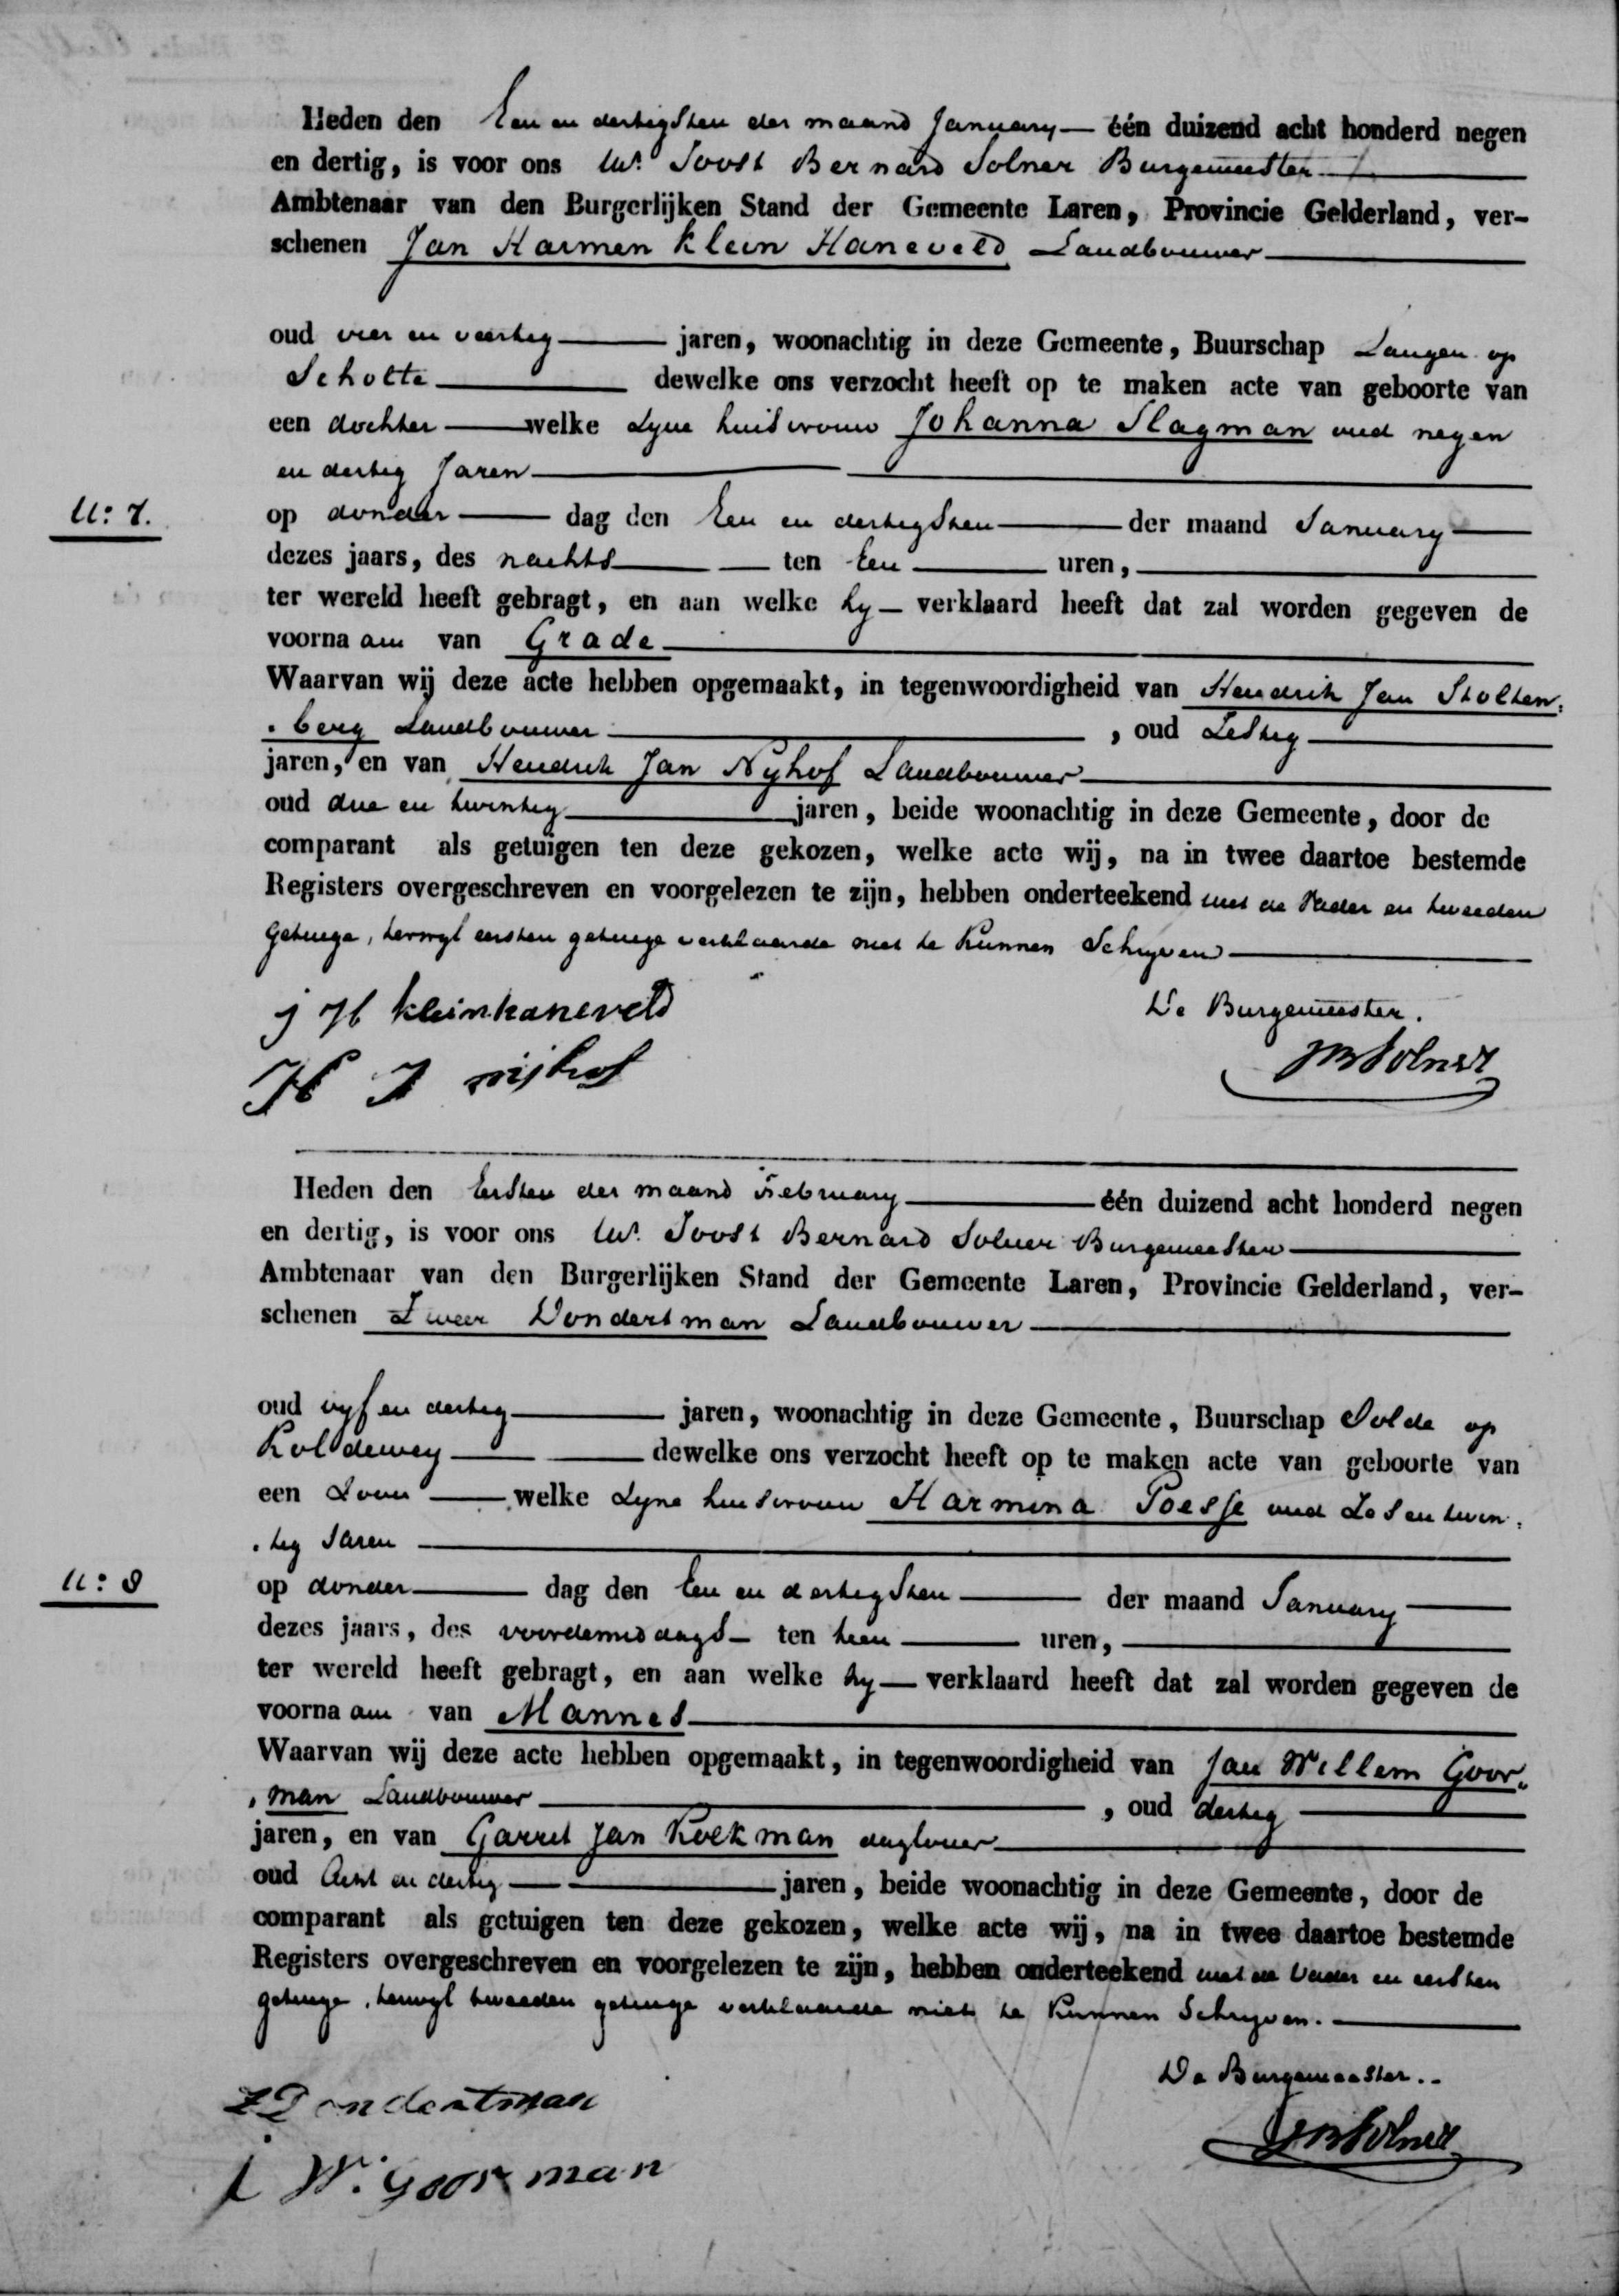 Heden den Een en dertigsten der maand January één duizend acht honderd negen
en dertig, is voor ons Mr. Joost Bernard Solner Burgemeester
Ambtenaar van den Burgerlijken Stand der Gemeente Laren, Provincie Gelderland, ver-
schenen Jan Harmen Klein Haneveld Landbouwer
oud vier en veertig jaren, woonachtig in deze Gemeente, Buurschap Langen op
Scholte dewelke ons verzocht heeft op te maken acte van geboorte van
een dochter welke Zyne huisvrouw Johanna Slagman oud negen
en dertig Jaren
N: 7.
op donder dag den Een en dertigsten der maand January
dezes jaars, des nachts ten Een uren,
ter wereld heeft gebragt, en aan welke hy verklaard heeft dat zal worden gegeven de
voornaam van Grade
Waarvan wij deze acte hebben opgemaakt, in tegenwoordigheid van Hendrik Jan Stolten:
. berg Landbouwer , oud Zestig
jaren, en van Hendrik Jan Nyhof Landbouwer
oud drie en twintig jaren, beide woonachtig in deze Gemeente, door de
comparant als getuigen ten deze gekozen, welke acte wij, na in twee daartoe bestemde
Registers overgeschreven en voorgelezen te zijn, hebben onderteekend met de Vader en tweeden
getuige, terwyl eersten getuige verklaarde niet te Kunnen Schryven
j H kleinhaneveld
De Burgemeester.
H J nijhof
JB Solner
Heden den Eersten der maand February één duizend acht honderd negen
en dertig, is voor ons Mr. Joost Bernard Solner Burgemeester
Ambtenaar van den Burgerlijken Stand der Gemeente Laren, Provincie Gelderland, ver-
schenen Zweer Dondertman Landbouwer
oud vyf en dertig jaren, woonachtig in deze Gemeente, Buurschap Oolde op
Koldewey dewelke ons verzocht heeft op te maken acte van geboorte van
een Zoon welke Zyne huisvrouw Harmina Poesse oud Zes en twin:
. tig Jaren
N: 8
op donder dag den Een en dertigsten der maand January
dezes jaars, des voordemiddags ten tien uren,
ter wereld heeft gebragt, en aan welke hy verklaard heeft dat zal worden gegeven de
voornaam van Mannes
Waarvan wij deze acte hebben opgemaakt, in tegenwoordigheid van Jan Willem Goor:
. man Landbouwer , oud dertig
jaren, en van Garret Jan Koekman daglooner
oud Acht en dertig jaren, beide woonachtig in deze Gemeente, door de
comparant als getuigen ten deze gekozen, welke acte wij, na in twee daartoe bestemde
Registers overgeschreven en voorgelezen te zijn, hebben onderteekend met de Vader en eersten
getuige, terwyl tweeden getuige verklaarde niet te Kunnen Schryven.
De Burgemeester..
Z Dondertman
JB Solner
j W. goorman